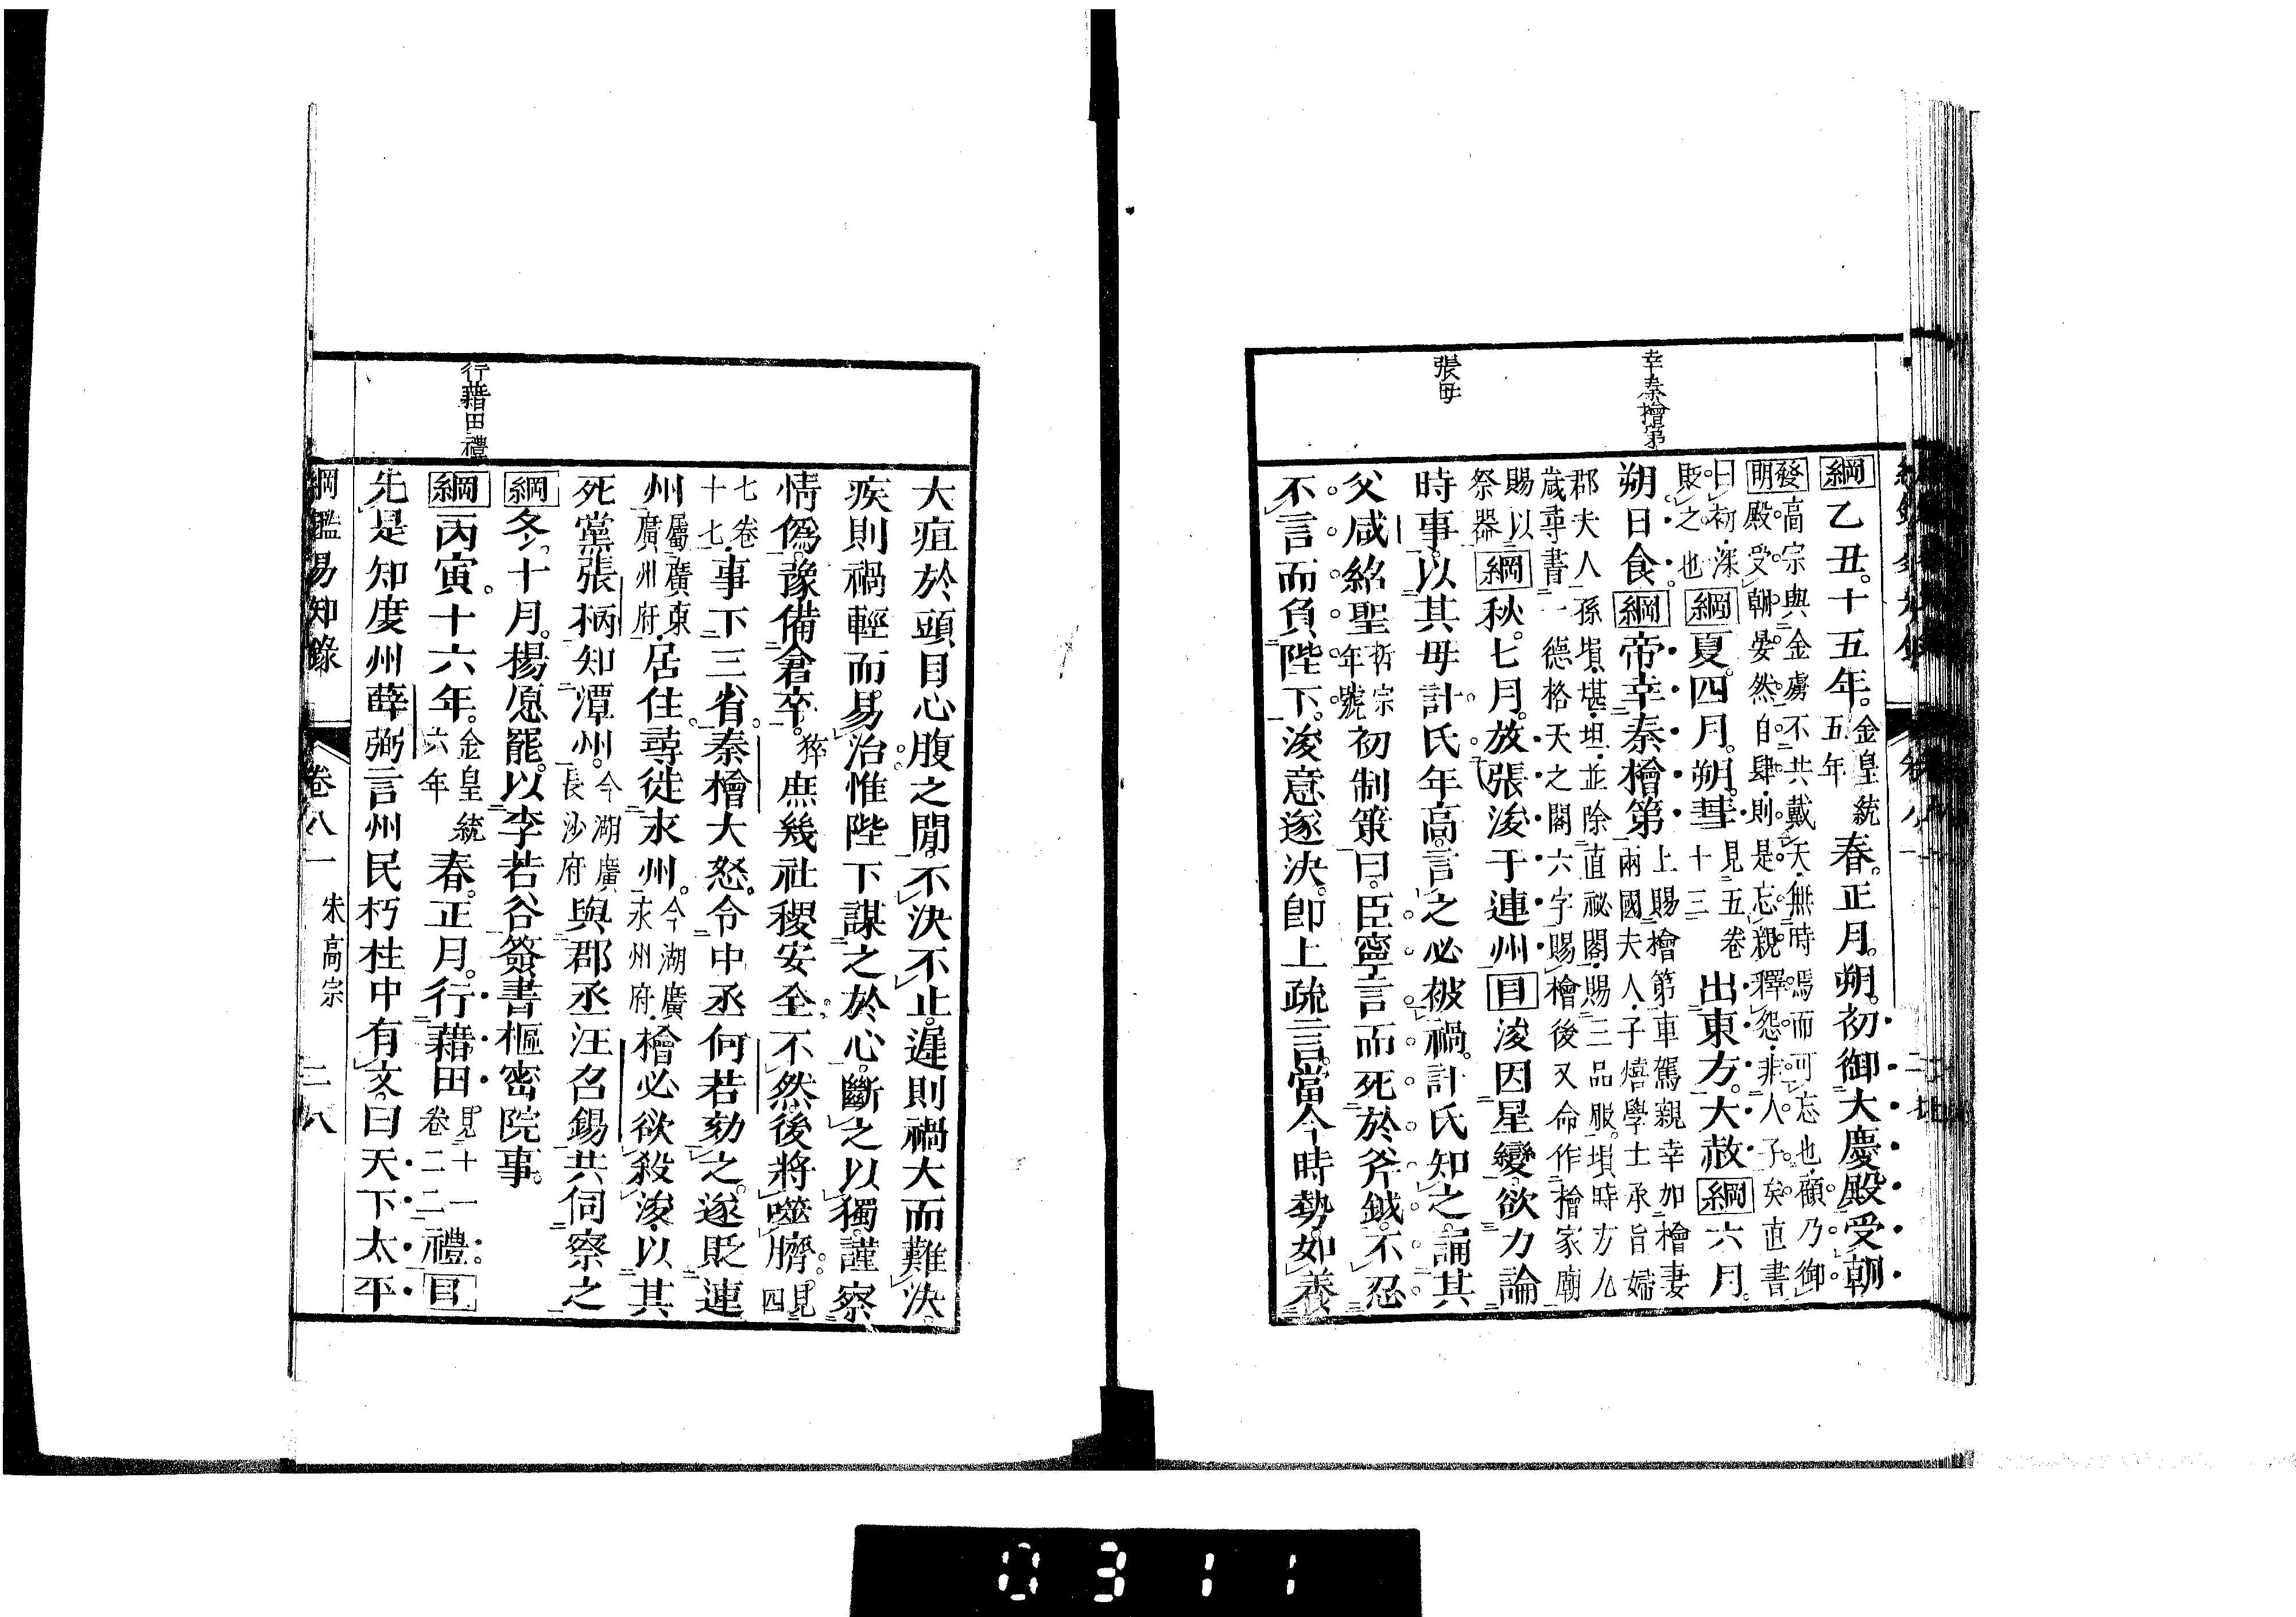 幸秦檜第
張母
綱乙丑。十五年。金皇統五年春。正月。朔。初御大慶殿受朝
發明高宗與金虜不共戴天。無時焉而可忘也。顧乃御殿受朝。晏然自肆。則是忘親釋怨。非人子矣。直書
曰初。深貶之也綱夏。四月。朔。彗見五卷十三出東方。大赦綱六月。
朔。日食。綱帝幸秦檜第上賜檜第車駕親幸加檜妻兩國夫人。子熺學士承旨婦
郡夫人孫塤。堪。坦。並除直祕閣。賜三品服。塤時方九歲尋書一德格天之閣六字賜檜後又命作檜家廟
賜以祭器綱秋。七月。放張浚于連州目浚因星變欲力論
時事。以其母計氏年高。言之必被禍。計氏知之。誦其
父咸紹聖哲宗年號初制策曰。臣寧言而死於斧鉞。不忍
不言而負陛下。浚意遂決。卽上疏言。當今時勢。如養
大疽於頭目心腹之閒。不決不止。遲則禍大而難決。
疾則禍輕而易治。惟陛下謀之於心。斷之以獨。謹察
情僞。豫備倉卒。猝庶幾社稷安全。不然。後將噬臍。見四
七卷十七。事下三省。秦檜大怒。令中丞何若劾之。遂貶連
州屬廣東廣州府。居住。尋徙永州。今湖廣永州府。檜必欲殺浚。以其
死黨張柄知潭州。今湖廣長沙府與郡丞汪召錫共伺察之
綱冬。十月。揚愿罷。以李若谷簽書樞密院事。
綱丙寅。十六年。金皇統六年春。正月。行藉田見十一卷二二禮。目
先是知虔州薛弼言州民朽柱中有文。曰天下太平
行藉田禮
綱鑑易知錄 卷八一 宋高宗 二八
0311